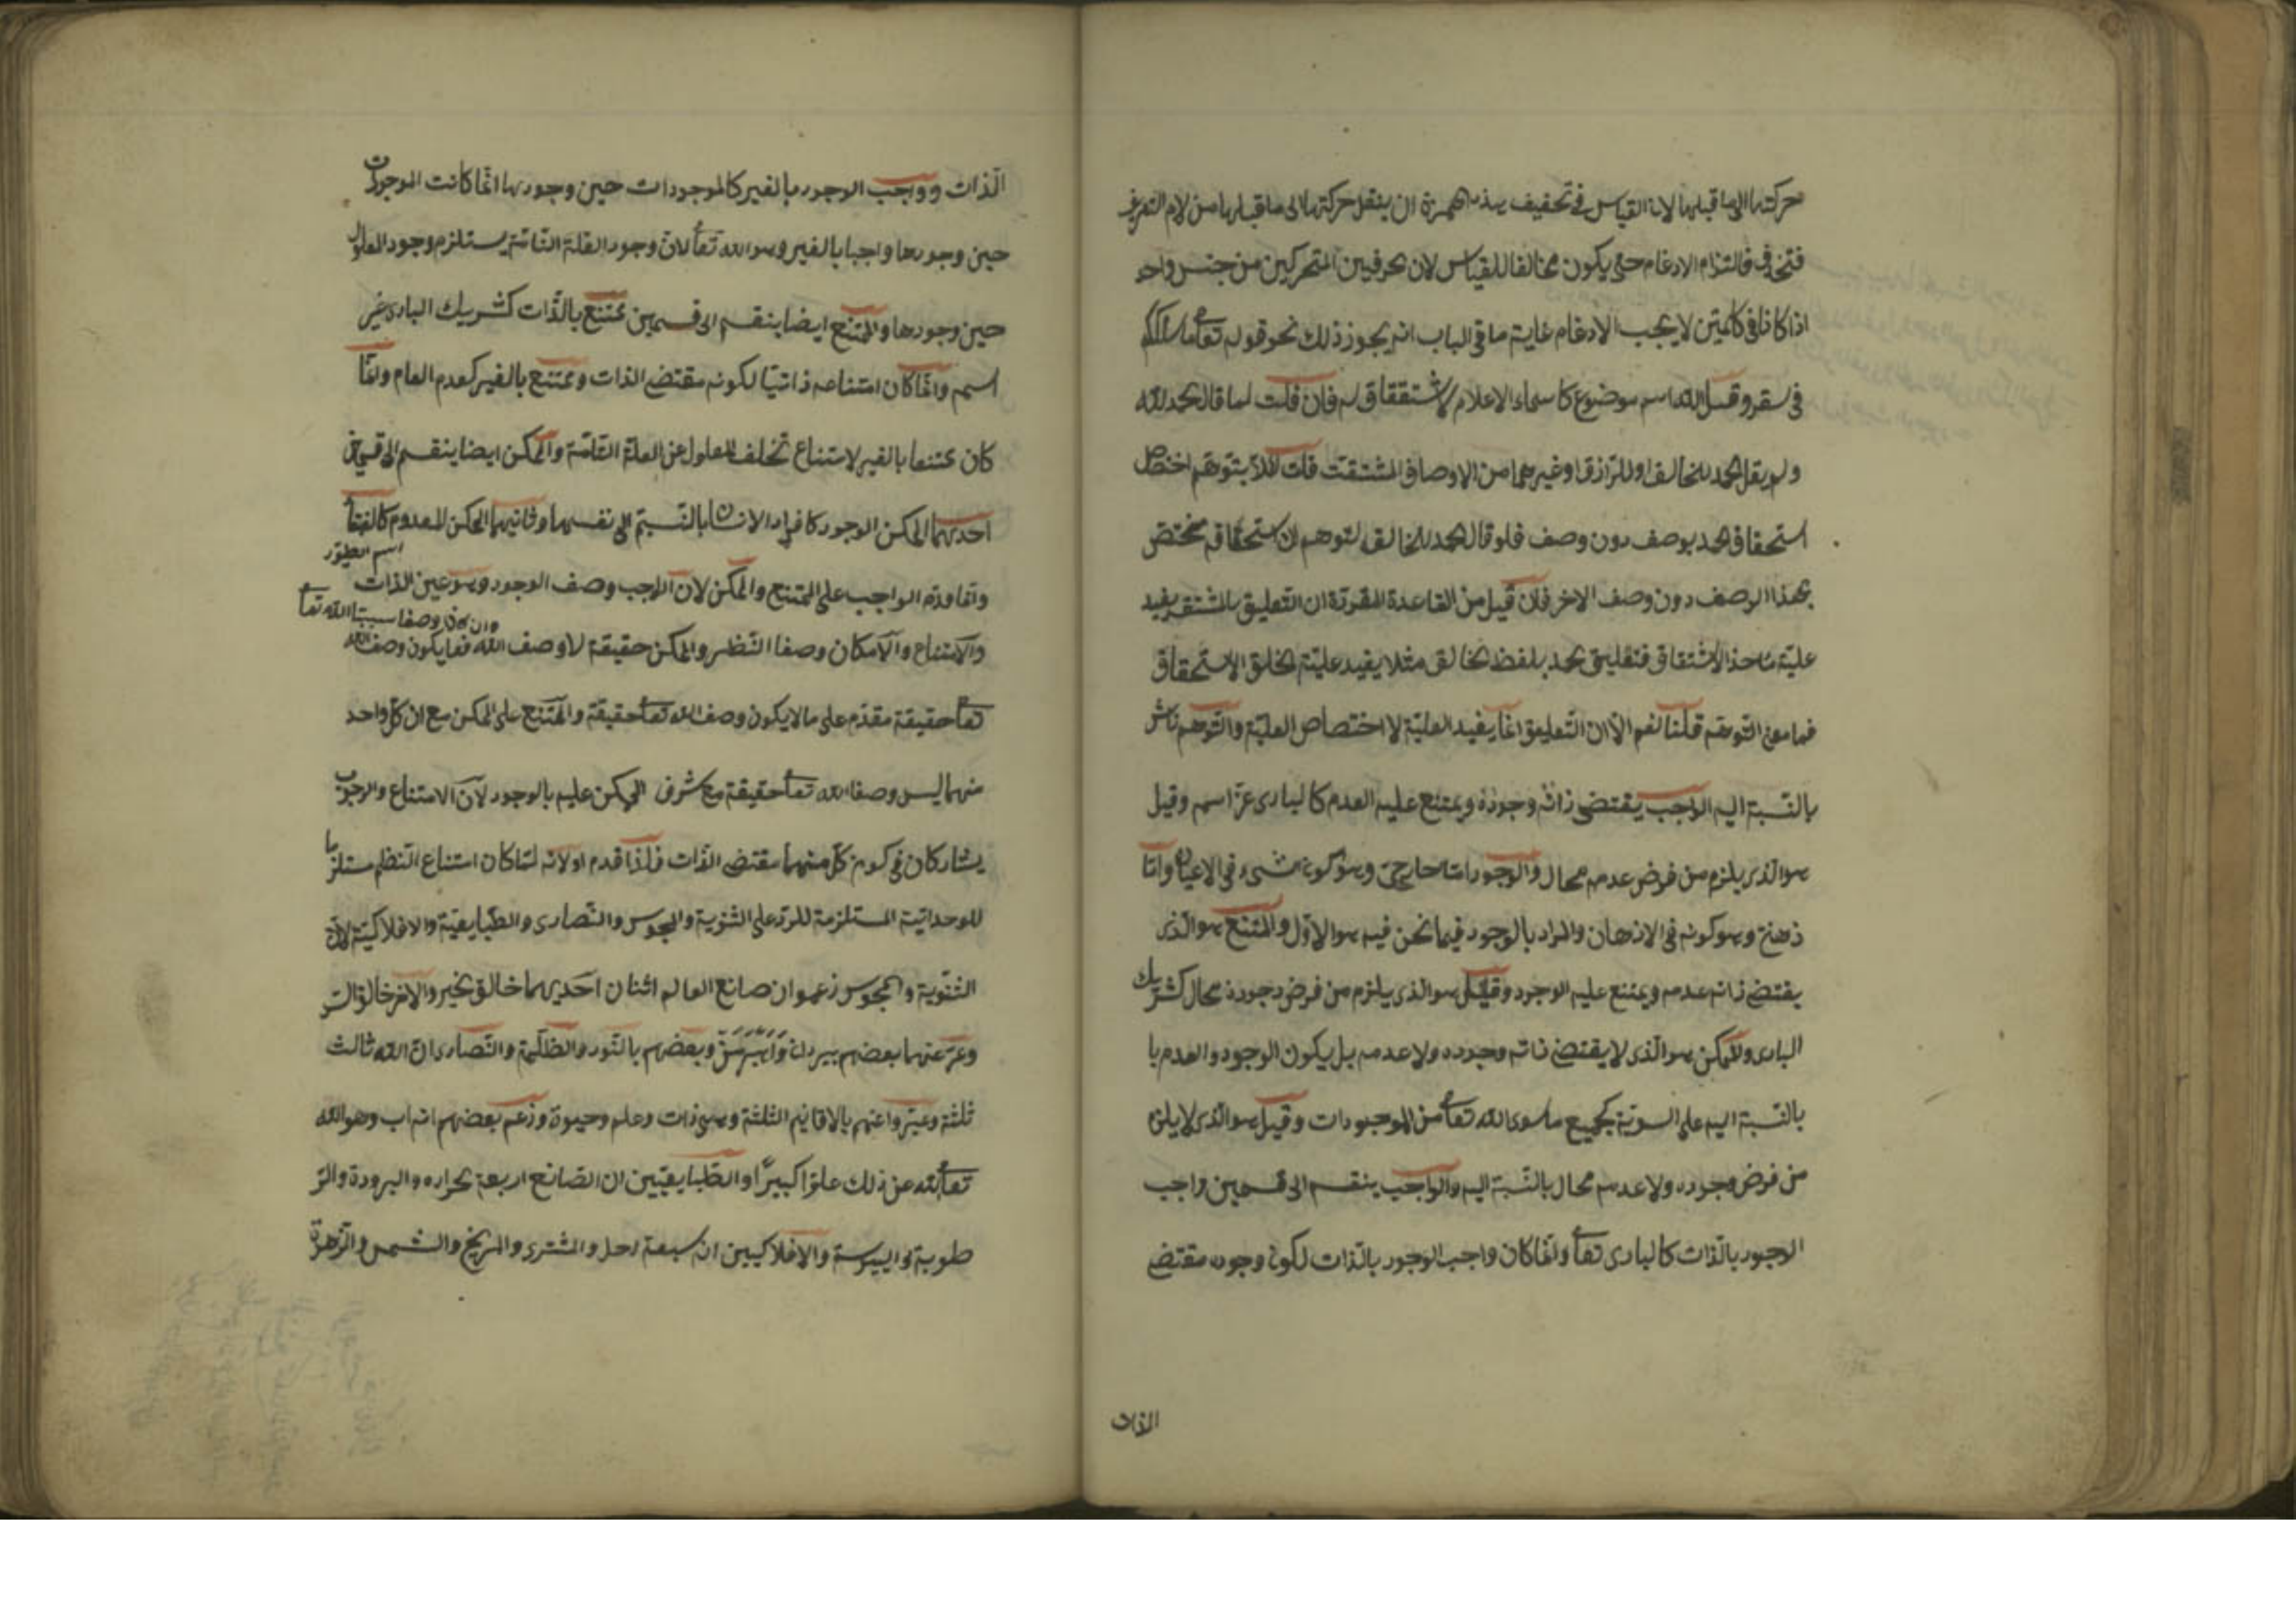 حركتها الى ما قبلها لان القياس في تخفيف هذه الهمزة ان ينقل حركتها الى ما قبلها من لام التعريف
فتحذف فالتزام الادغام حتى يكون مخالفا للقياس لان الحرفين المتحركين من جنس واحد
اذا كانا في كلمتين لا يجب الادغام غاية ما في الباب انه يجوز ذلك نحو قوله تعالى ما سلككم
في سقر وقيل الله اسم موضوع كاسماء الاعلام لا اشتقاق له فان قلت لما قال الحمد لله
ولم يقل الحمد للخالق او للرازق او غيرهما من الاوصاف المشتقة قلت لئلا يتوهم اختصاص
استحقاق الحمد بوصف دون وصف فلو قال الحمد للخالق لتوهم ان استحقاقه مختص
بهذا الوصف دون وصف الاخر فان قيل من القاعدة المقررة ان التعليق بالمشتق يفيد
علية مأخذ الاشتقاق فتعليق الحمد بلفظ الخالق مثلا يفيد علية الخلق الاستحقاق
فما معنى التوهم قلنا نعم الا ان التعليق انما يفيد العلية لا اختصاص العلية والتوهم ناش
بالنسبة اليه الواجب يقتضى ذاته وجوده ويمتنع عليه العدم كالبارى عز اسمه وقيل
هو الذى يلزم من فرض عدمه محال والوجود اما خارجى وهو كون الشىء في الاعيان واما
ذهنى وهو كونه في الاذهان والمراد بالوجود فيما نحن فيه هو الاول والممتنع هو الذى
يقتضى ذاته عدمه ويمتنع عليه الوجود وقيل هو الذى يلزم من فرض وجوده محال كشريك
البارى والممكن هو الذى لا يقتضى ذاته وجوده ولا عدمه بل يكون الوجود والعدم با
بالنسبة اليه على السوية كجميع ما سوى الله تعالى من الموجودات وقيل هو الذى لا يلزم
من فرض وجوده ولا عدمه محال بالنسبة اليه والواجب ينقسم الى قسمين واجب
الوجود بالذات كالبارى تعالى وانما كان واجب الوجود بالذات لكون وجوده مقتضى
الذات
الذات وواجب الوجود بالغير كالموجودات حين وجودها انما كانت الموجودات
حين وجودها واجبا بالغير وهو الله تعالى لان وجود العلة التامة يستلزم وجود المعلول
حين وجودها والممتنع ايضا ينقسم الى قسمين ممتنع بالذات كشريك البارى عز
اسمه وانما كان امتناعه ذاتيا لكونه مقتضى الذات وممتنع بالغير كعدم العام وانما
كان ممتنعا بالغير لامتناع تخلف المعلول عن العلة التامة والممكن ايضا ينقسم الى قسمين
احديهما الممكن الوجود كافراد الانسان بالنسبة الى نفسها وثانيهما الممكن المعدوم كالعنقاء
اسم الطيور
وانما قدم الواجب على الممتنع والممكن لان الواجب وصف الوجود وهو عين الذات
وان كان وصفا سببيا الله تعالى
والامتناع والامكان وصفا النظير والممكن حقيقة لا وصف الله فما يكون وصف الله
تعالى حقيقة مقدم على ما لا يكون وصف الله تعالى حقيقة والممتنع على الممكن مع ان كل واحد
منهما ليس وصفا الله تعالى حقيقة مع شرف الممكن عليه بالوجود لان الامتناع والوجوب
يشاركان في كون كل منهما مقتضى الذات فلذا قدم او لانه لما كان امتناع النظير مستلزما
للوحدانية المستلزمة للرد على الثنوية والمجوس والنصارى والطبايعية والافلاكية لان
الثنوية والمجوس زعموا ان صانع العالم اثنان احديهما خالق الخير والاخر خالق الشر
وعبر عنهما بعضهم بيردان واهرمن وبعضهم بالنور والظلمة والنصارى ان الله ثالث
ثلثة وعبروا عنهم بالاقانيم الثلثة وهى ذات وعلم وحيوة وزعم بعضهم انه اب وهو الله
تعالى الله عن ذلك علوا كبيرا والطبايعيين ان الصانع اربعة الحراره والبرودة والر
طوبة واليبوسة والافلاكيين انه سبعة زحل والمشترى والمريخ والشمس والزهرة